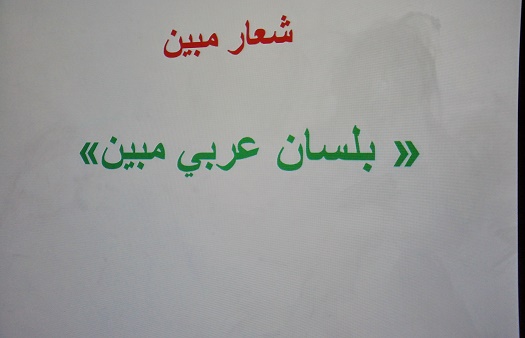 شعار مبين
« بلسان عربي مبين»